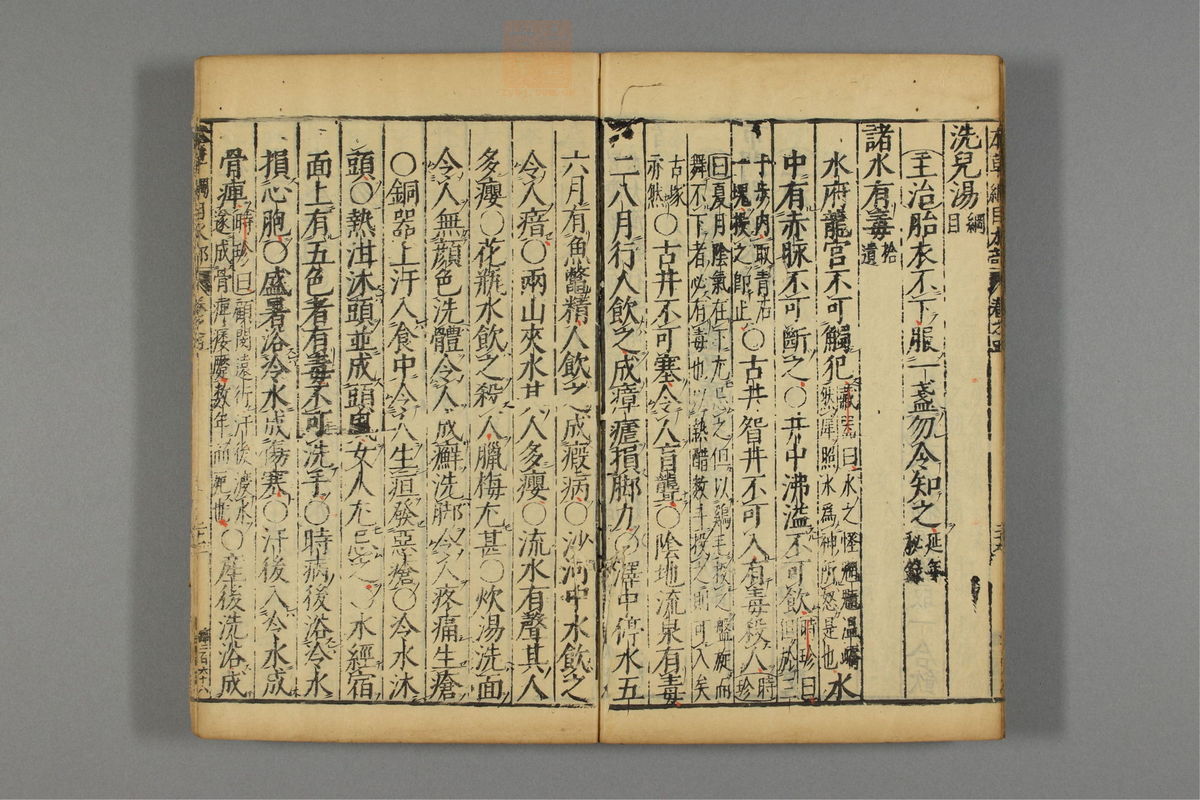 洗兒湯綱目
主治胎衣不下服一盞勿令知之延年秘錄
諸水有毒拾遺
水府龍宮不可觸犯藏器曰水之怪魍龍溫嶠然犀照水為神所怒是也水
中有赤脉不可斷之○井中沸溢不可飲時珍曰但於三
十步內取青石一塊投之即止○古井眢井不可入有毒殺人時珍
曰夏月陰氣在下尤忌之但以雞毛投之盤旋而舞不下者必有毒也以熱醋數斗投之則可入矣
古塚亦然○古井不可塞令人盲聾○陰地流泉有毒
二八月行人飲之成瘴瘧損脚力○澤中停水五
六月有魚鱉精人飲之成瘕病○沙河中水飲之
令人瘖○兩山夾水其人多癭○流水有聲其人
多癭○花瓶水飲之殺人臘梅尤甚○炊湯洗面
令人無顏色洗體令人成癬洗脚令人疼痛生瘡
○銅器上汗入食中令人生疽發惡瘡○冷水沐
頭○熱泔沐頭並成頭風女人尤忌之○水經宿
面上有五色者有毒不可洗手○時病後浴冷水
損心胞○盛暑浴冷水成傷寒○汗後入冷水成
骨痺時珍曰顧閔遠行汗後渡水遂成骨痺痿蹷數年而死也○產後洗浴成